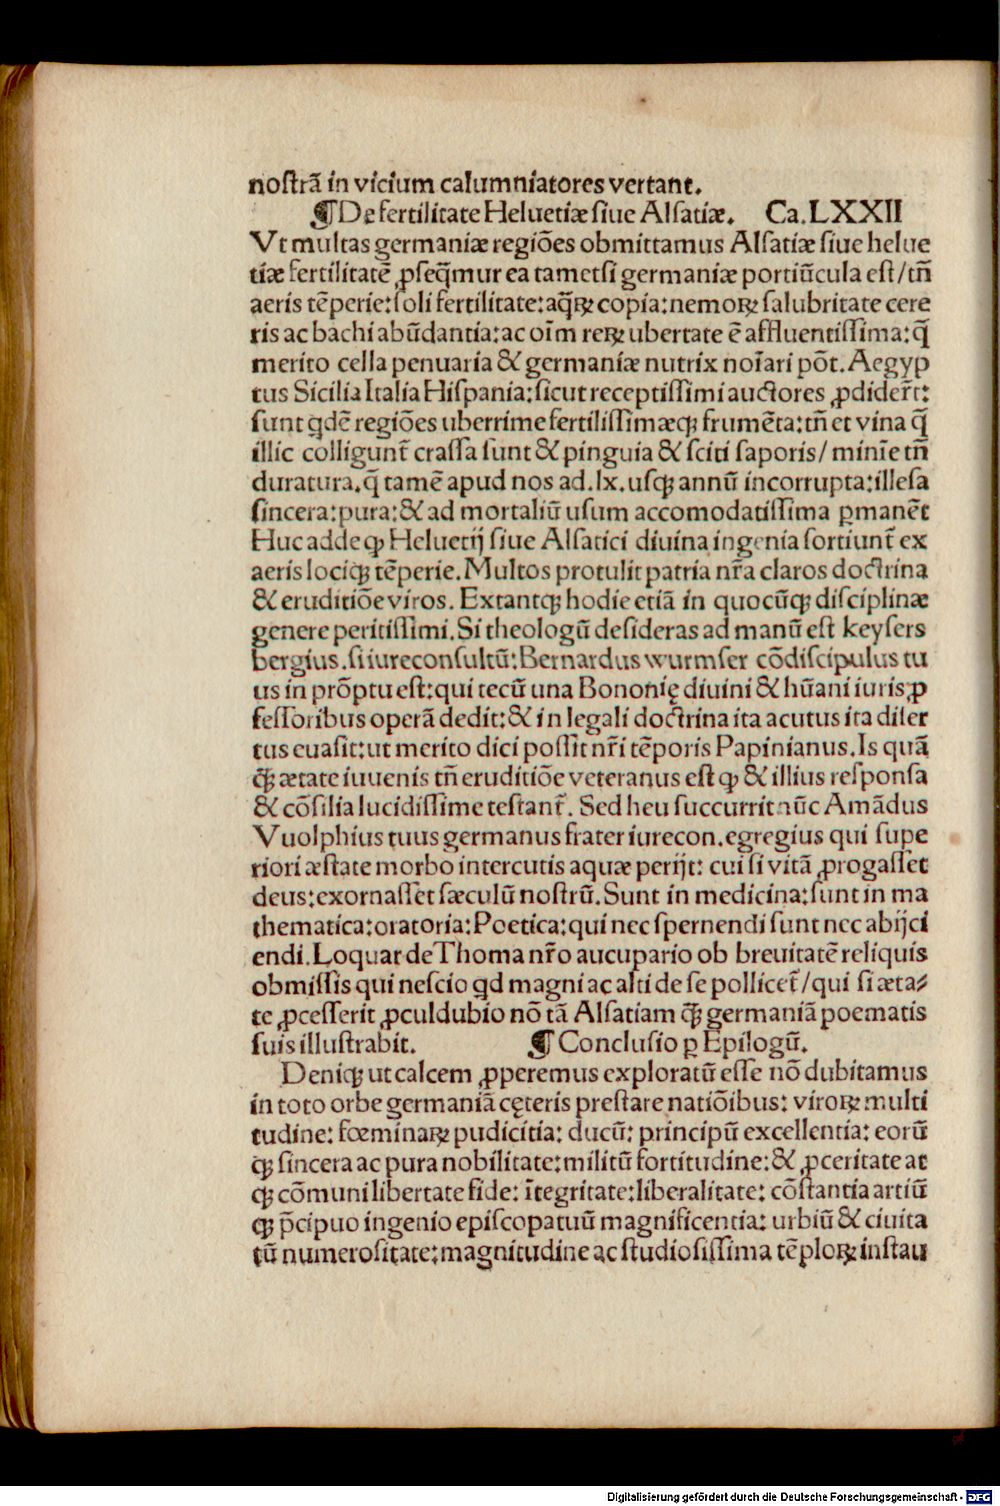 nostrā in vicium calumniatores vertant.
¶De fertilitate Heluetiæ siue Alsatiæ. Ca.LXXII
Vt multas germaniæ regiōes obmittamus Alsatiæ siue helue
tiæ fertilitatē ꝓseq̄mur ea tametsi germaniæ portiūcula est/tn̄
aeris tēperie:soli fertilitate:aq̄ꝝ copia:nemoꝝ salubritate cere
ris ac bachi abūdantia:ac oīm reꝝ ubertate ē affluentissima:q̄
merito cella penuaria & germaniæ nutrix noīari pōt. Aegyp
tus Sicilia Italia Hispania:sicut receptissimi auctores ꝓdider̄t:
sunt qdē regiōes uberrime fertilissimæqꝫ frumēta:tn̄ et vina q̄
illic colligunt̄ crassa sunt & pinguia & sciti saporis/ minīe tn̄
duratura.q̄ tamē apud nos ad.lx.usqꝫ annū incorrupta:illesa
sincera:pura:& ad mortaliū usum accomodatissima ꝑmanēt
Huc adde ꝙ Heluetij siue Alsatici diuina ingenia sortiunt̄ ex
aeris lociqꝫ tēperie.Multos protulit patria nr̄a claros doctrina
& eruditiōe viros. Extantqꝫ hodie etiā in quocūqꝫ disciplinæ
genere peritissimi.Si theologū desideras ad manū est keysers
bergius.si iureconsultū:Bernardus wurmser cōdiscipulus tu
us in prōptu est:qui tecū una Bononię diuini & hūani iuris ꝓ
fessoribus operā dedit:& in legali doctrina ita acutus ita diser
tus euasit:ut merito dici possit nr̄i tēporis Papinianus.Is quā
qꝫ̄ ætate iuuenis tn̄ eruditiōe veteranus est ꝙ & illius responsa
& cōsilia lucidissime testant̄. Sed heu succurrit nūc Amādus
Vuolphius tuus germanus frater iurecon.egregius qui supe
riori æstate morbo intercutis aquæ perijt: cui si vitā ꝓrogasset
deus:exornasset sæculū nostrū.Sunt in medicina:sunt in ma
thematica:oratoria:Poetica:qui nec spernendi sunt nec abijci
endi.Loquar de Thoma nr̄o aucupario ob breuitatē reliquis
obmissis qui nescio qd magni ac alti de se pollicet̄/qui si æta⸗
te ꝓcesserit ꝓculdubio nō tā Alsatiam qꝫ̄ germaniā poematis
suis illustrabit. ¶ Conclusio ꝑ Epilogū.
Deniqꝫ ut calcem ꝓperemus exploratū esse nō dubitamus
in toto orbe germaniā cęteris prestare natiōibus: viroꝝ multi
tudine: fœminaꝝ pudicitia: ducū: principū excellentia: eorū
qꝫ sincera ac pura nobilitate:militū fortitudine:& ꝓceritate at
qꝫ cōmuni libertate fide: ītegritate:liberalitate: cōstantia artiū
qꝫ p̄cipuo ingenio episcopatuū magnificentia: urbiū & ciuita
tū numerositate:magnitudine ac studiosissima tēploꝝ instau
Digitalisierung gefördert durch die Deutsche Forschungsgemeinschaft - DFG